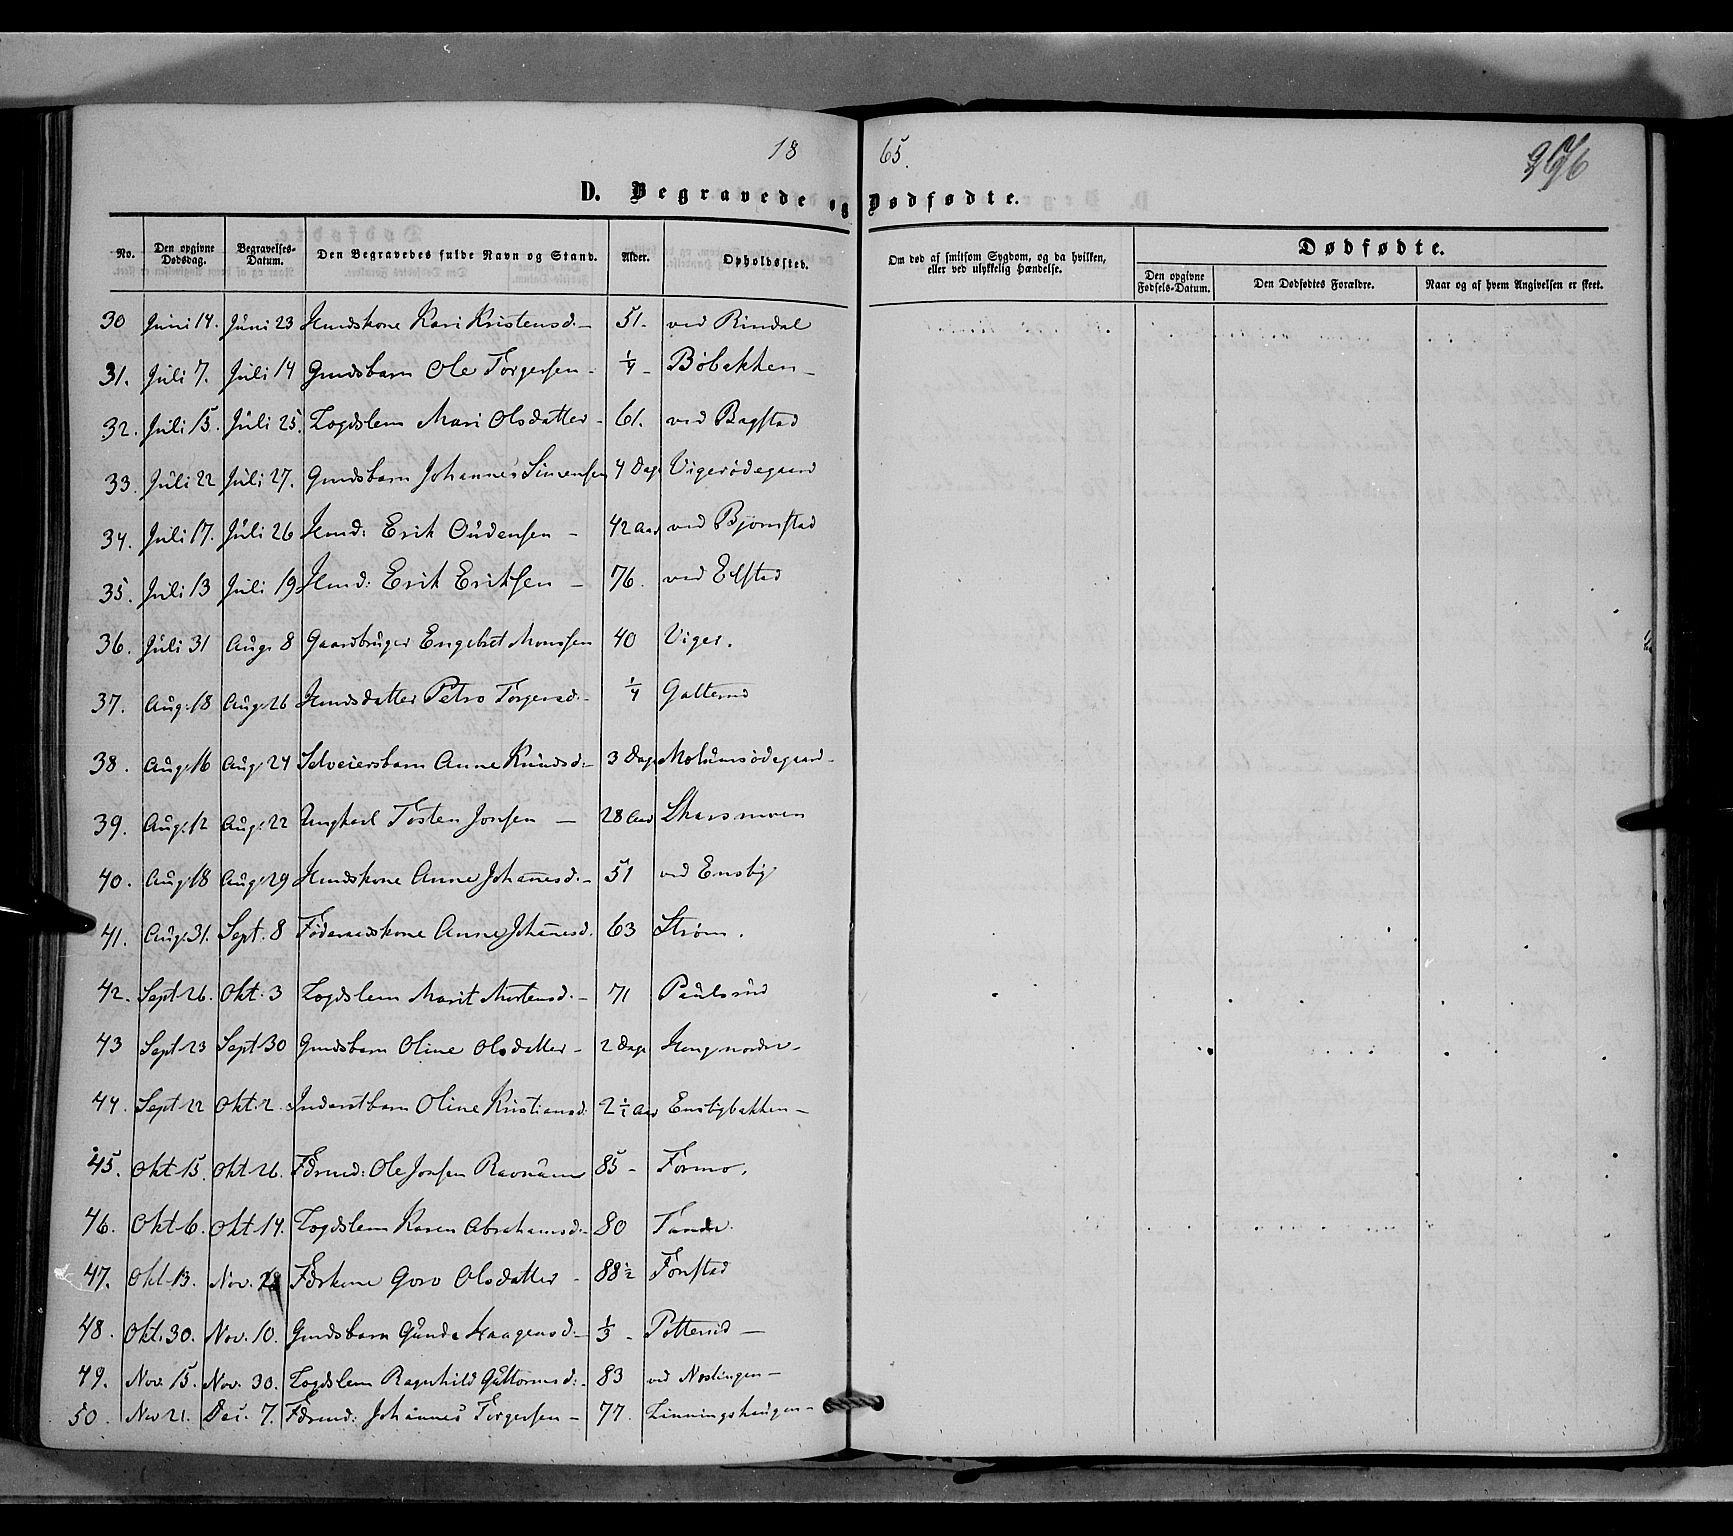 18 65.
D. Begravede og Dødfødte.
No. Den opgivne Dødsdag. Begravelses-Datum. Den Begravedes fulde Navn og Stand. Alder. Opholdssted. Om død af smitsom Sygdom, og da hvilken, eller ved ulykkelig Hændelse. Dødfødte.
Den opgivne Fødsels-Datum. Den Dødfødtes Forældre. Naar og af hvem Angivelsen er skeet.
30 Juni 14. Juni 23 Huuskone Kari Kristensd.- 51. ved Rindal
31. Juli 7. Juli 14 Gmdsbarn Ole Torgersen - ¼ - Bøbakken -
32. Juli 15. Juli 25. Lægdslem Mari Olsdatter - 61. ved Bagstad
33. Juli 22 Juli 27. Gmdsbarn Johannes Simensen 4 Dage Vigerødegaard
34. Juli 17. Juli 26 Hmd: Erik Oudensen - 42 Aar ved Bjørnstad
35. Juli 13 Juli 19 Hmd: Erik Eriksen - 76. ved Elstad
36. Juli 31 Aug. 8 Gaardbruger Engebret Monssen 40 Viger.
37. Aug. 18 Aug. 26 Hmdsdatter Petro Torgersd.- ¼ Galterud
38. Aug. 16 Aug. 24 Selveiersbarn Anne Knudsd.- 3 Dage Molumsødegaard-
39. Aug. 12 Aug. 22 Ungkarl Tosten Jonsen - 28 Aar Skarsmoen
40. Aug. 18 Aug. 29 Hmdskone Anne Johanesd.- 51 ved Ensby
41. Aug. 31. Sept. 8 Føderaadskone Anne Johanesd. 63 Strøm.
42. Sept 26. Okt. 3 Lægdslem Marit Mortensd.- 71 Paulsrud
43 Sept 23 Sept 30 Gmdsbarn Oline Olsdatter - 2 Dage
44. Sept 22 Okt. 2. Inderstbarn Oline Kristiansd: 2½ Aar Ensbybakken -
45. Okt 15. Okt 26. Fdrmd: Ole Jonsen 85 - Formo.
46. Okt 6. Okt 14. Lægdslem Karen Abrahamsd.- 80 Tande.
47. Okt. 13. Nov. Fdrkone Goro Olsdatter - 88½ Fonstad
48. Okt. 30. Nov. 10. Gmdsbarn Gunda Haagensd.- ⅓ - Potterud -
49. Nov. 15. Nov. 30. Lægdslem Ragnhild Guttormsd.- 83 ved Nordingen -
50. Nov 21. Dec. 7. Fdrmd: Johannes Torgersen - 77. Linningshaugen -